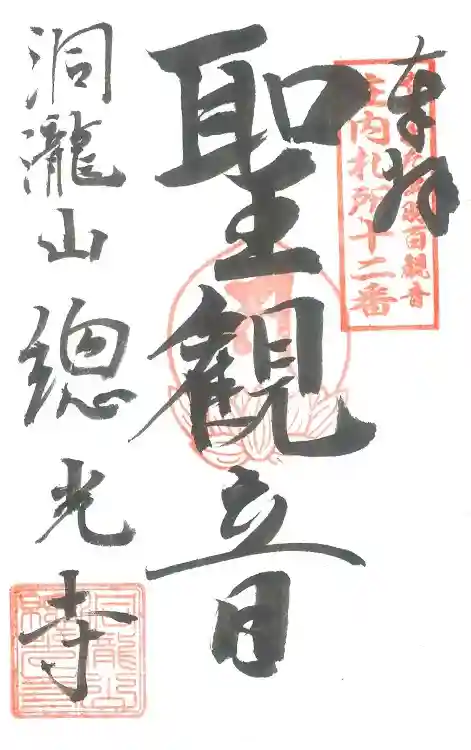 奉拝
百観音
庄内札所十二番
聖観音
洞瀧山總光寺